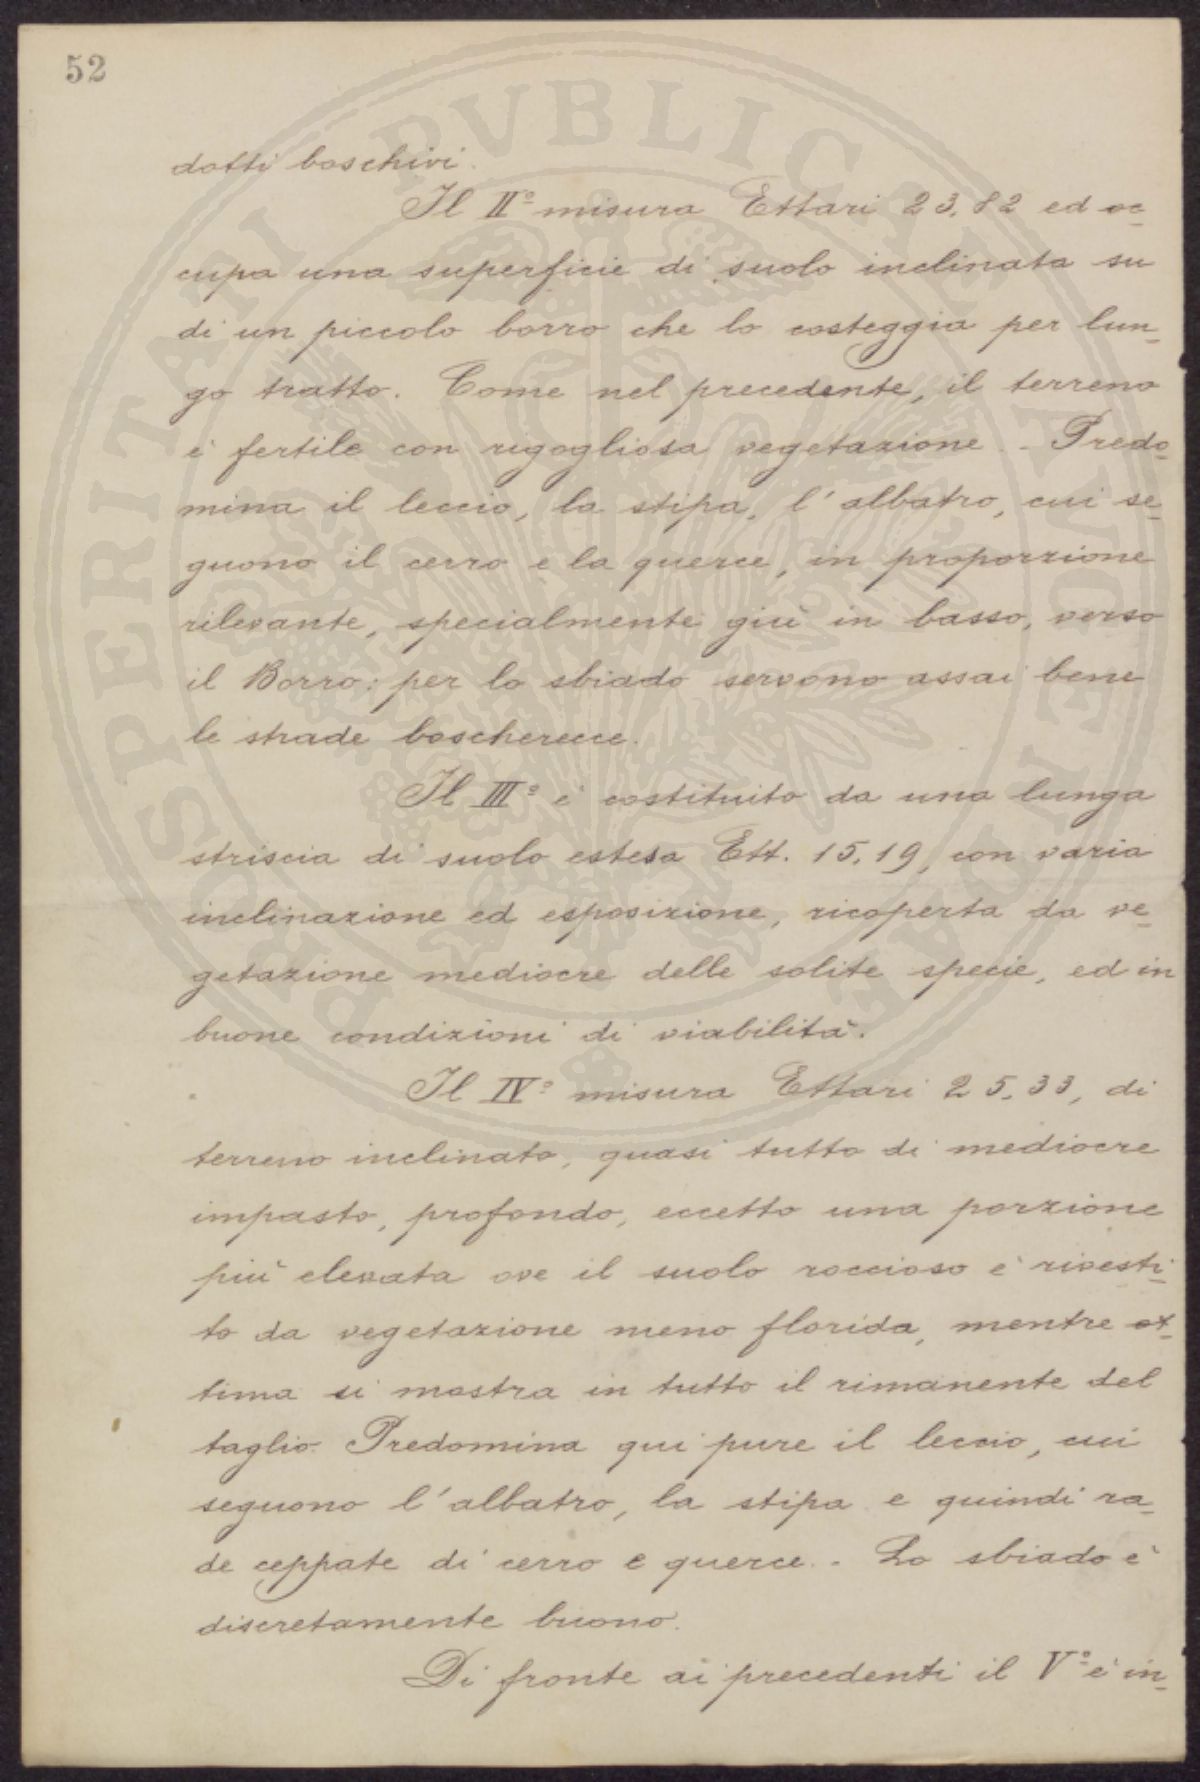 52
dotti boschivi.
Il II° misura Ettari 23.82 ed oc-
cupa una superficie di suolo inclinata su
di un piccolo borro che lo costeggia per lun-
go tratto. Come nel precedente, il terreno
è fertile con rigogliosa vegetazione. - Predo-
mina il leccio, la stipa, l'albatro, cui se-
guono il cerro e la querce, in proporzione
rilevante, specialmente giù in basso, verso
il Borro: per lo sbiado servono assai bene
le strade boscherecce.
Il III° è costituito da una lunga
striscia di suolo estesa Ett. 15.19, con varia
inclinazione ed esposizione, ricoperta da ve-
getazione mediocre delle solite specie, ed in
buone condizioni di viabilità.
Il IV° misura Ettari 25.33, di
terreno inclinato, quasi tutto di mediocre
impasto, profondo, eccetto una porzione
più elevata ove il suolo roccioso è rivesti-
to da vegetazione meno florida, mentre ot-
tima si mostra in tutto il rimanente del
taglio. Predomina qui pure il leccio, cui
seguono l'albatro, la stipa e quindi ra-
de ceppate di cerro e querce. - Lo sbiado è
discretamente buono.
Di fronte ai precedenti il V° è in-
PROSPERITATI PVBLICAE AVGENDAE